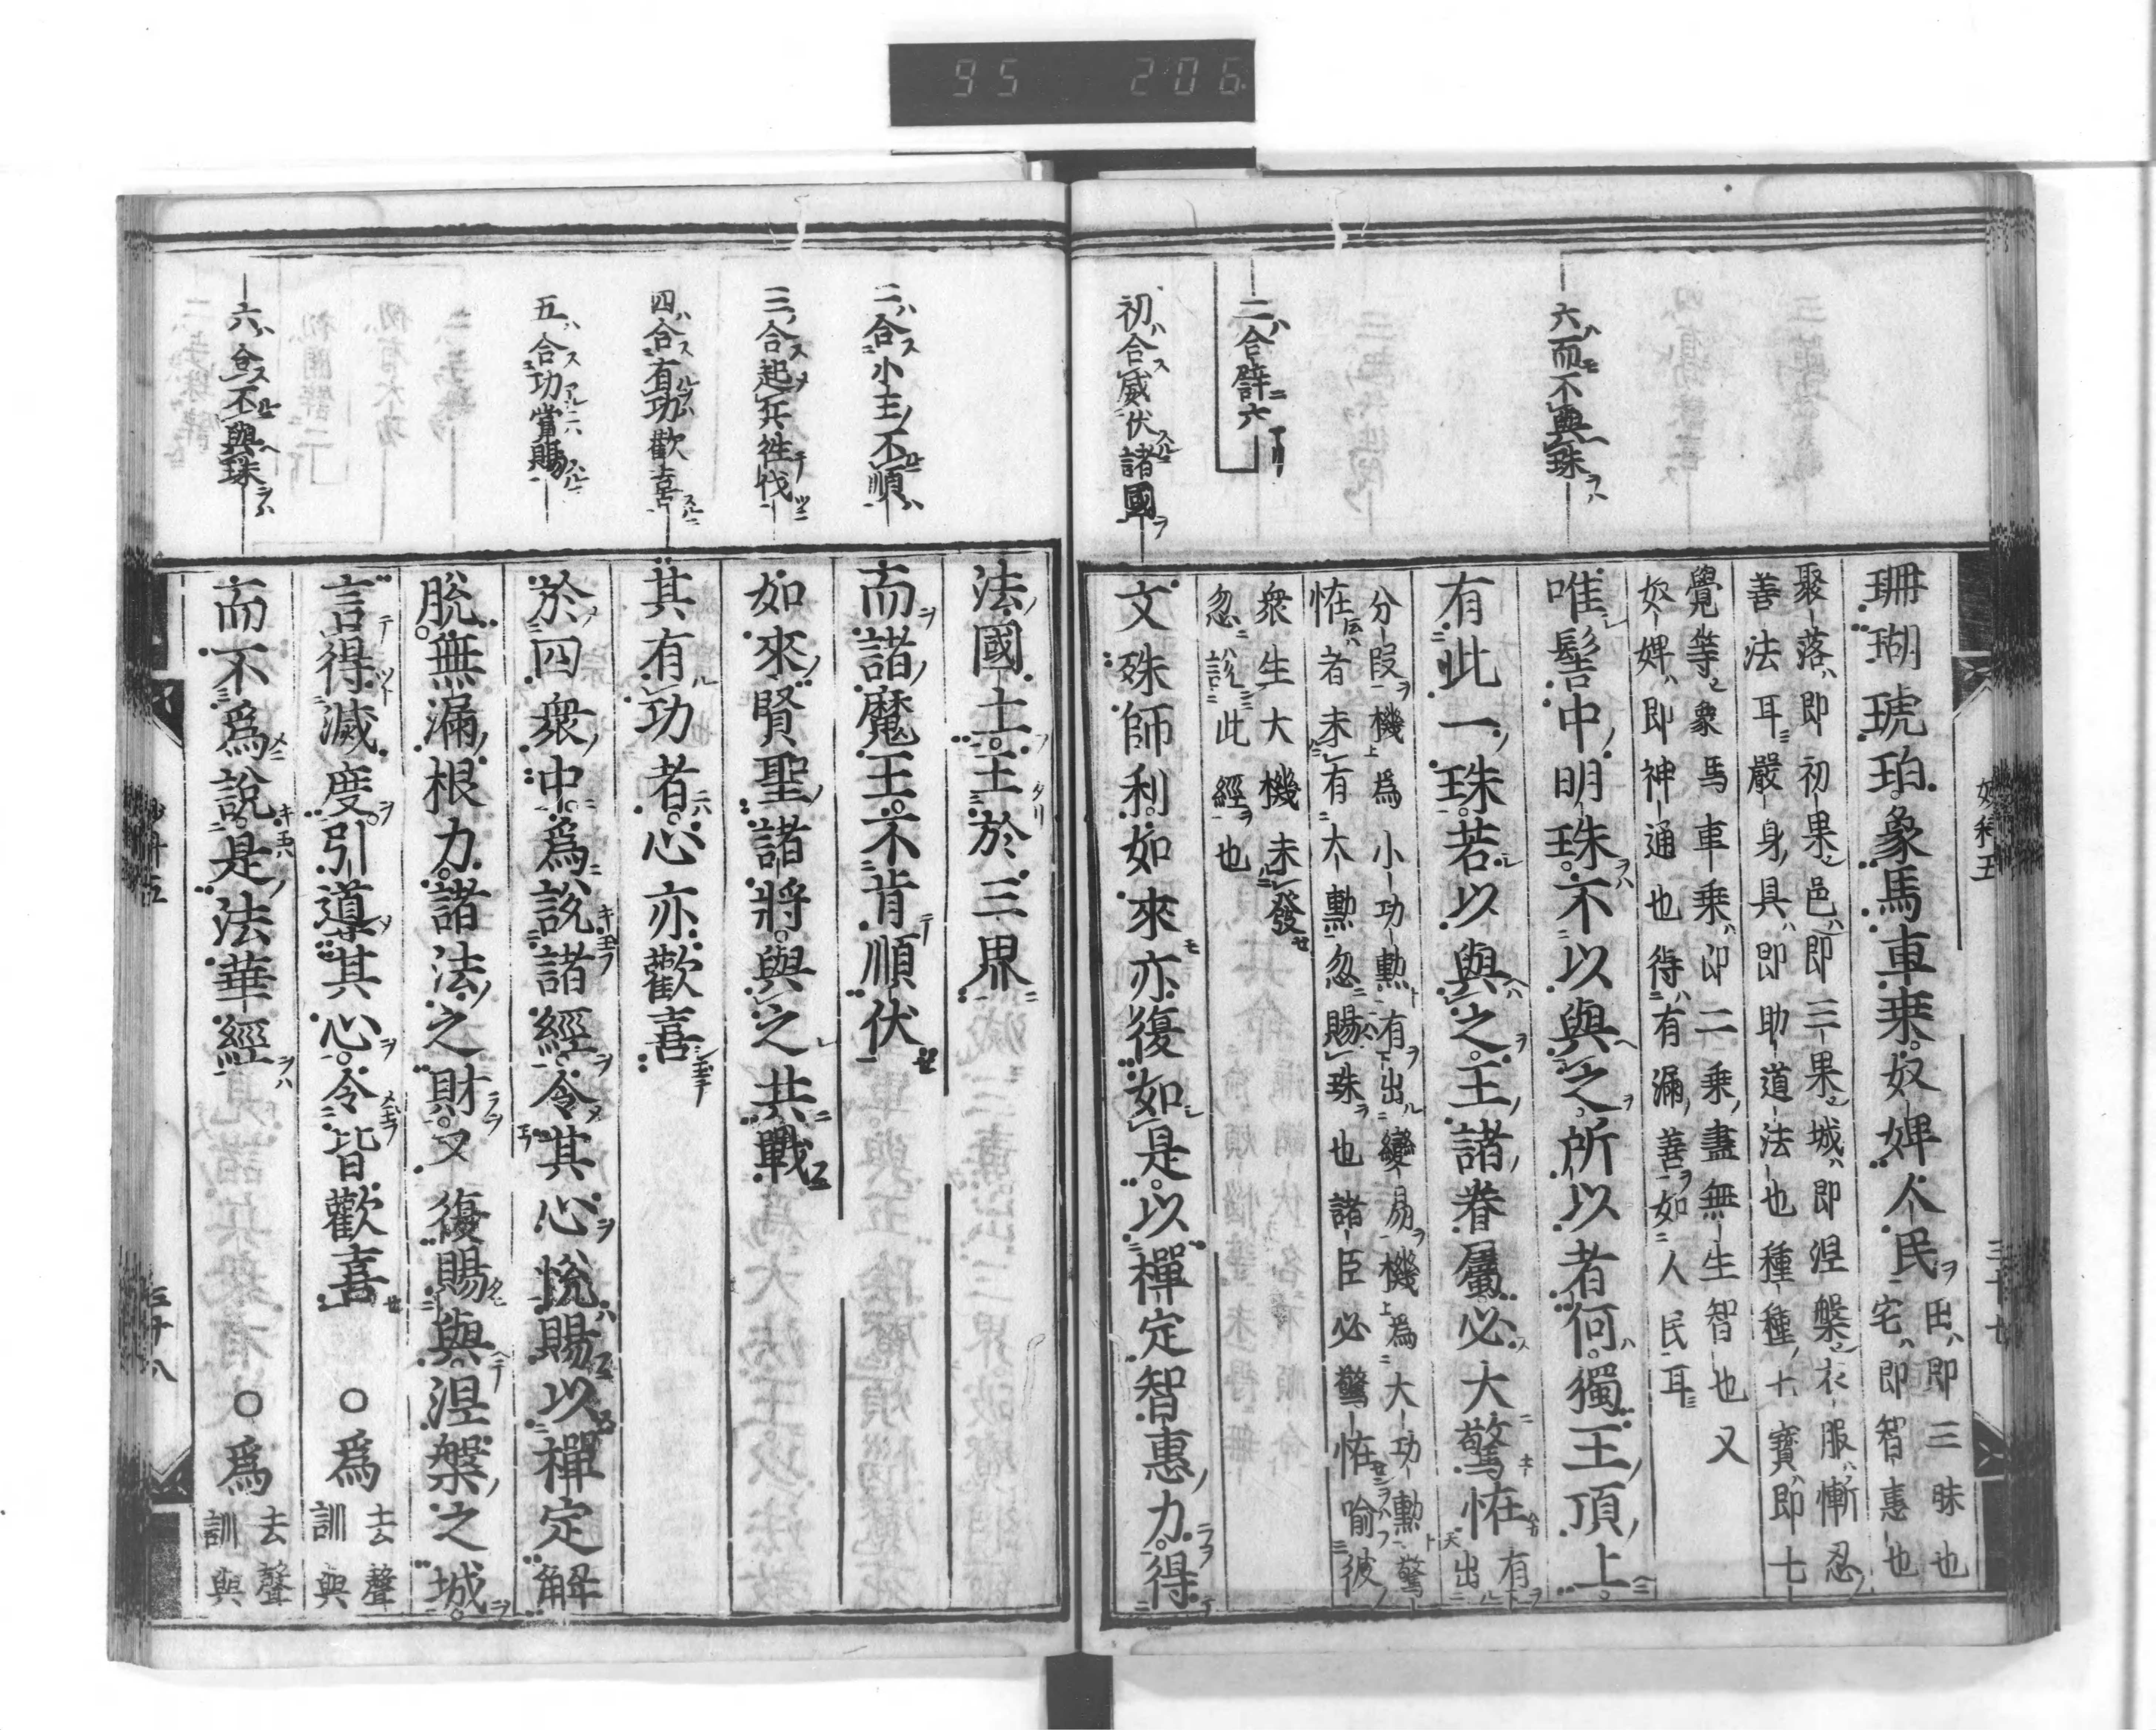 95 206
六而不與珠
二合譬六
初合威伏諸國
如科五
三十七
珊瑚琥珀象馬車乗奴婢人民
田即三昧也
宅即智惠也
聚落即初果邑即三果城即涅槃衣服慚忍
善法耳嚴身具即助道法也種種十寶即七
覺等象馬車乗即二乗盡無生智也又
奴婢即神通也得有漏善如人民耳
唯髻中明珠不以與之所以者何獨王頂上
有此一珠若以與之王諸眷屬必大驚恠
有
出
分叚機爲小功勲有出變易機爲大功勲驚
恠者未有大勲忽賜珠也諸臣必驚恠喻彼
衆生大機未發
忽説此經也
文殊師利如來亦復如是以禪定智惠力得
二合小王不順
三合起兵徃伐
四合有功歡喜
五合功當賜
六合不與珠
法國土王於三界
而諸魔王不肯順伏
如來賢聖諸將與之共戰
其有功者心亦歡喜
於四衆中爲説諸經令其心悅賜以禪定解
脫無漏根力諸法之財又復賜與涅槃之城
言得滅度引導其心令皆歡喜 ○爲
去聲
訓與
而不爲説是法華經 ○爲
去聲
訓與